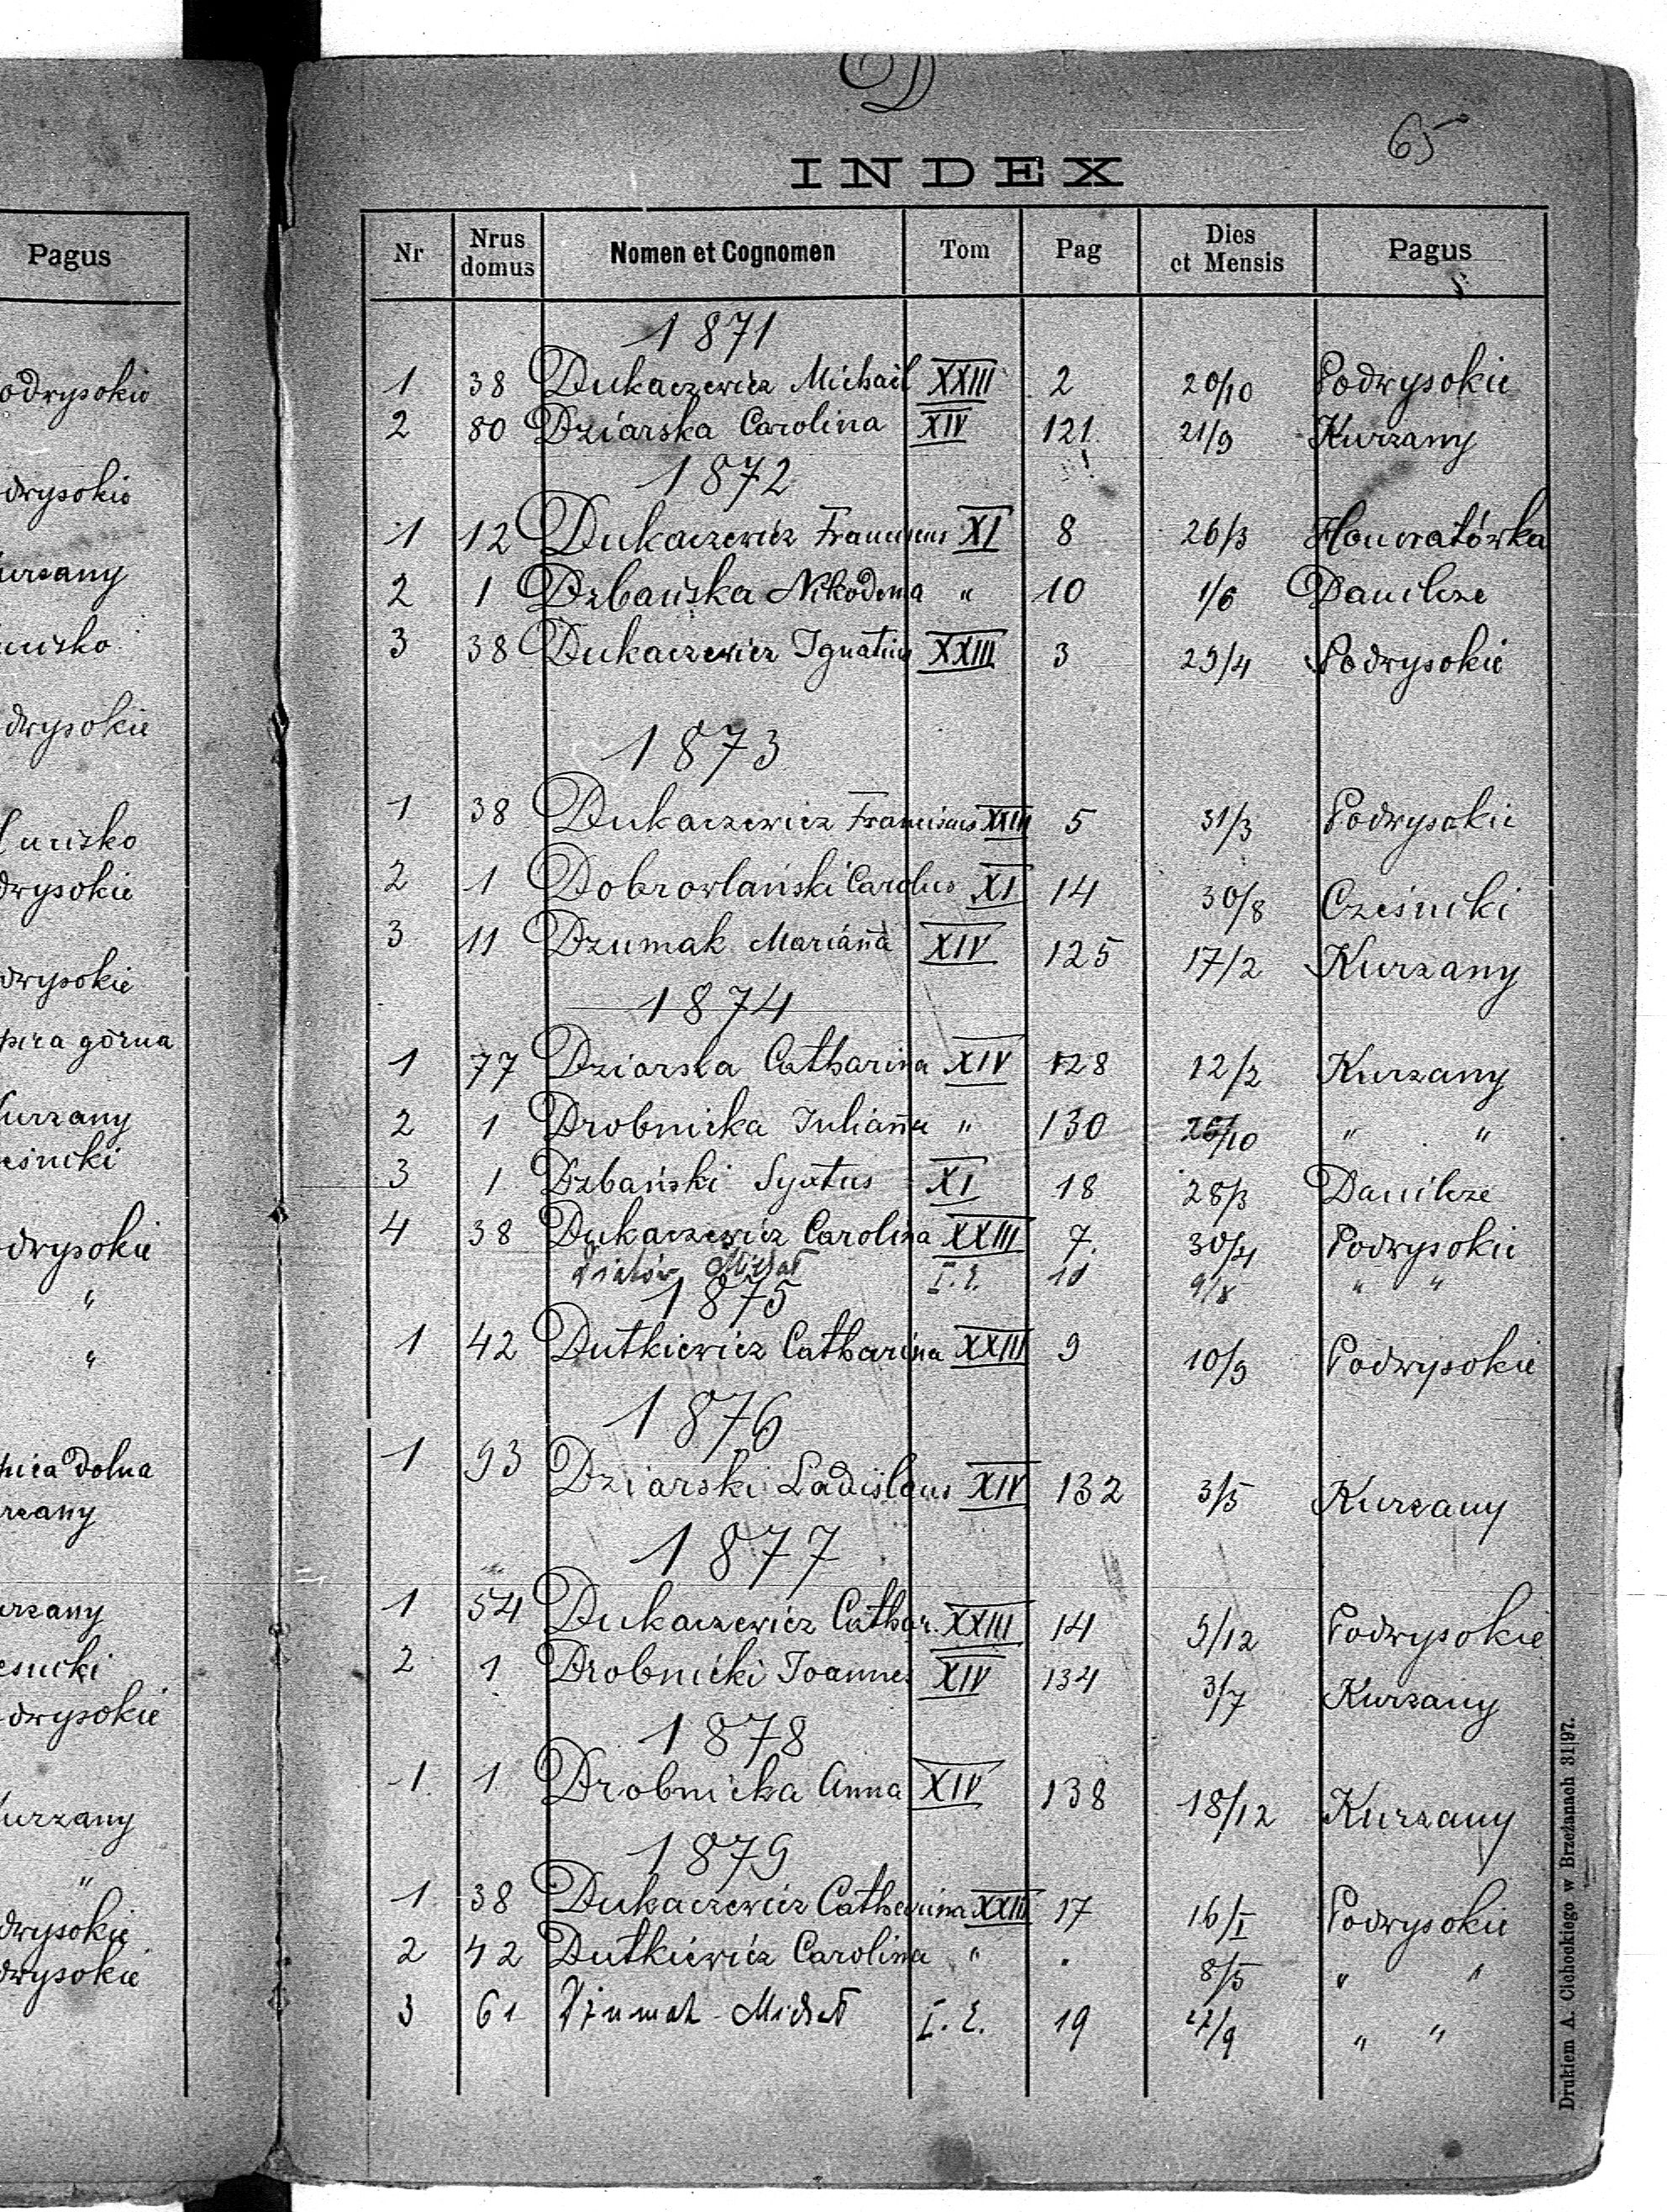 Pagus
odrysokie
dwysokie
urzany
dwysokie
dwysokie
dwysokie
górna
urzany
dwysokie
"
"
dolna
urzany
dwysokie
urzany
"
dwysokie
dwysokie
D
65
INDEX
Nr Nrus domus Nomen et Cognomen Tom Pag Dies et Mensis Pagus
1871
1 38 Dukaczewicz Michael XXIII 2 20/10 Podwysokie
2 80 Dziarska Carolina XIV 121 21/9 Kurzany
1872
1 12 Dukaczewicz Franciscus XI 8 26/3 Honoratówka
2 1 Dzbańska Nikodema " 10 1/6 Danilcze
3 38 Dukaczewicz Ignatius XXIII 3 29/4 Podwysokie
1873
1 38 Dukaczewicz Franciscus XXIII 5 31/3 Podwysokie
2 1 Dobrowlański Carolus XI 14 30/8 Cześniki
3 11 Dzumak Marianna XIV 125 17/2 Kurzany
1874
1 77 Dziarska Catharina XIV 128 12/2 Kurzany
2 1 Drobnicka Julianna " 130 /10 " "
3 1 Dzbański Syxtus XI 18 28/3 Danilcze
4 38 Dukaczewicz Carolina XXIII 7. 30/4 Podwysokie
Michał I. E. 10 9/8 " "
1875
1 42 Dutkiewicz Catharina XXIII 9 10/9 Podwysokie
1876
1 93 Dziarski Ladislaus XIV 132 3/5 Kurzany
1877
1 54 Dukaczewicz Cathar. XXIII 14 5/12 Podwysokie
2 1 Drobnicki Joannes XIV 134 3/7 Kurzany
1878
1 1 Drobnicka Anna XIV 138 18/12 Kurzany
1879
1 38 Dukaczewicz Catherina XXIII 17 16/I Podwysokie
2 42 Dutkiewicz Carolina " . 8/5 " "
3 61 Dżumak Michał I. E. 19 /9 " "
Drukiem A. Cichockiego w Brzeżanach 31|97.